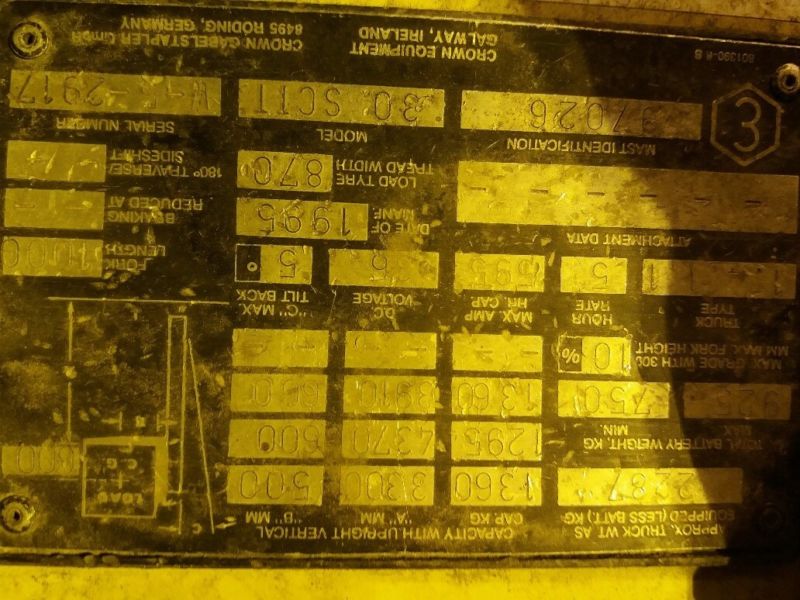 APPROX. TRUCK WT AS
EQUIPPED (LESS BATT.) KG
2287
CAPACITY WITH UPRIGHT VERTICAL
CAP KG "A" MM "B" MM
1360 3300 500
1295 4370 600
1360 3910
- - - - - -
LOAD
C.G.
600
TOTAL BATTERY WEIGHT, KG
MAX MIN.
925 750
MAX GRADE WITH 300
MM MAX. FORK HEIGHT
10 %
TRUCK
TYPE
HOUR
RATE
5
MAX. AMP
HR. CAP.
595
DC
VOLTAGE
"C" MAX.
TILT BACK
5 °
FORK
LENGTH
1000
ATTACHMENT DATA
- - - - - -
DATE OF
MANF.
1995
BRAKING
REDUCED AT
-/-
LOAD TYRE
TREAD WIDTH
870
180° TRAVERSE/
SIDESHIFT
-/-
MAST IDENTIFICATION
37026
MODEL
30 SCTT
SERIAL NUMBER
W-5-2917
3
801390-R B
CROWN EQUIPMENT
GALWAY, IRELAND
CROWN GABELSTAPLER GmbH
8495 RODING, GERMANY